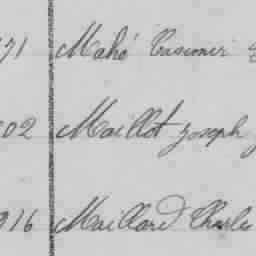 71 Mahé Casimir
02 Maillot Joseph
916 Maillard Charles